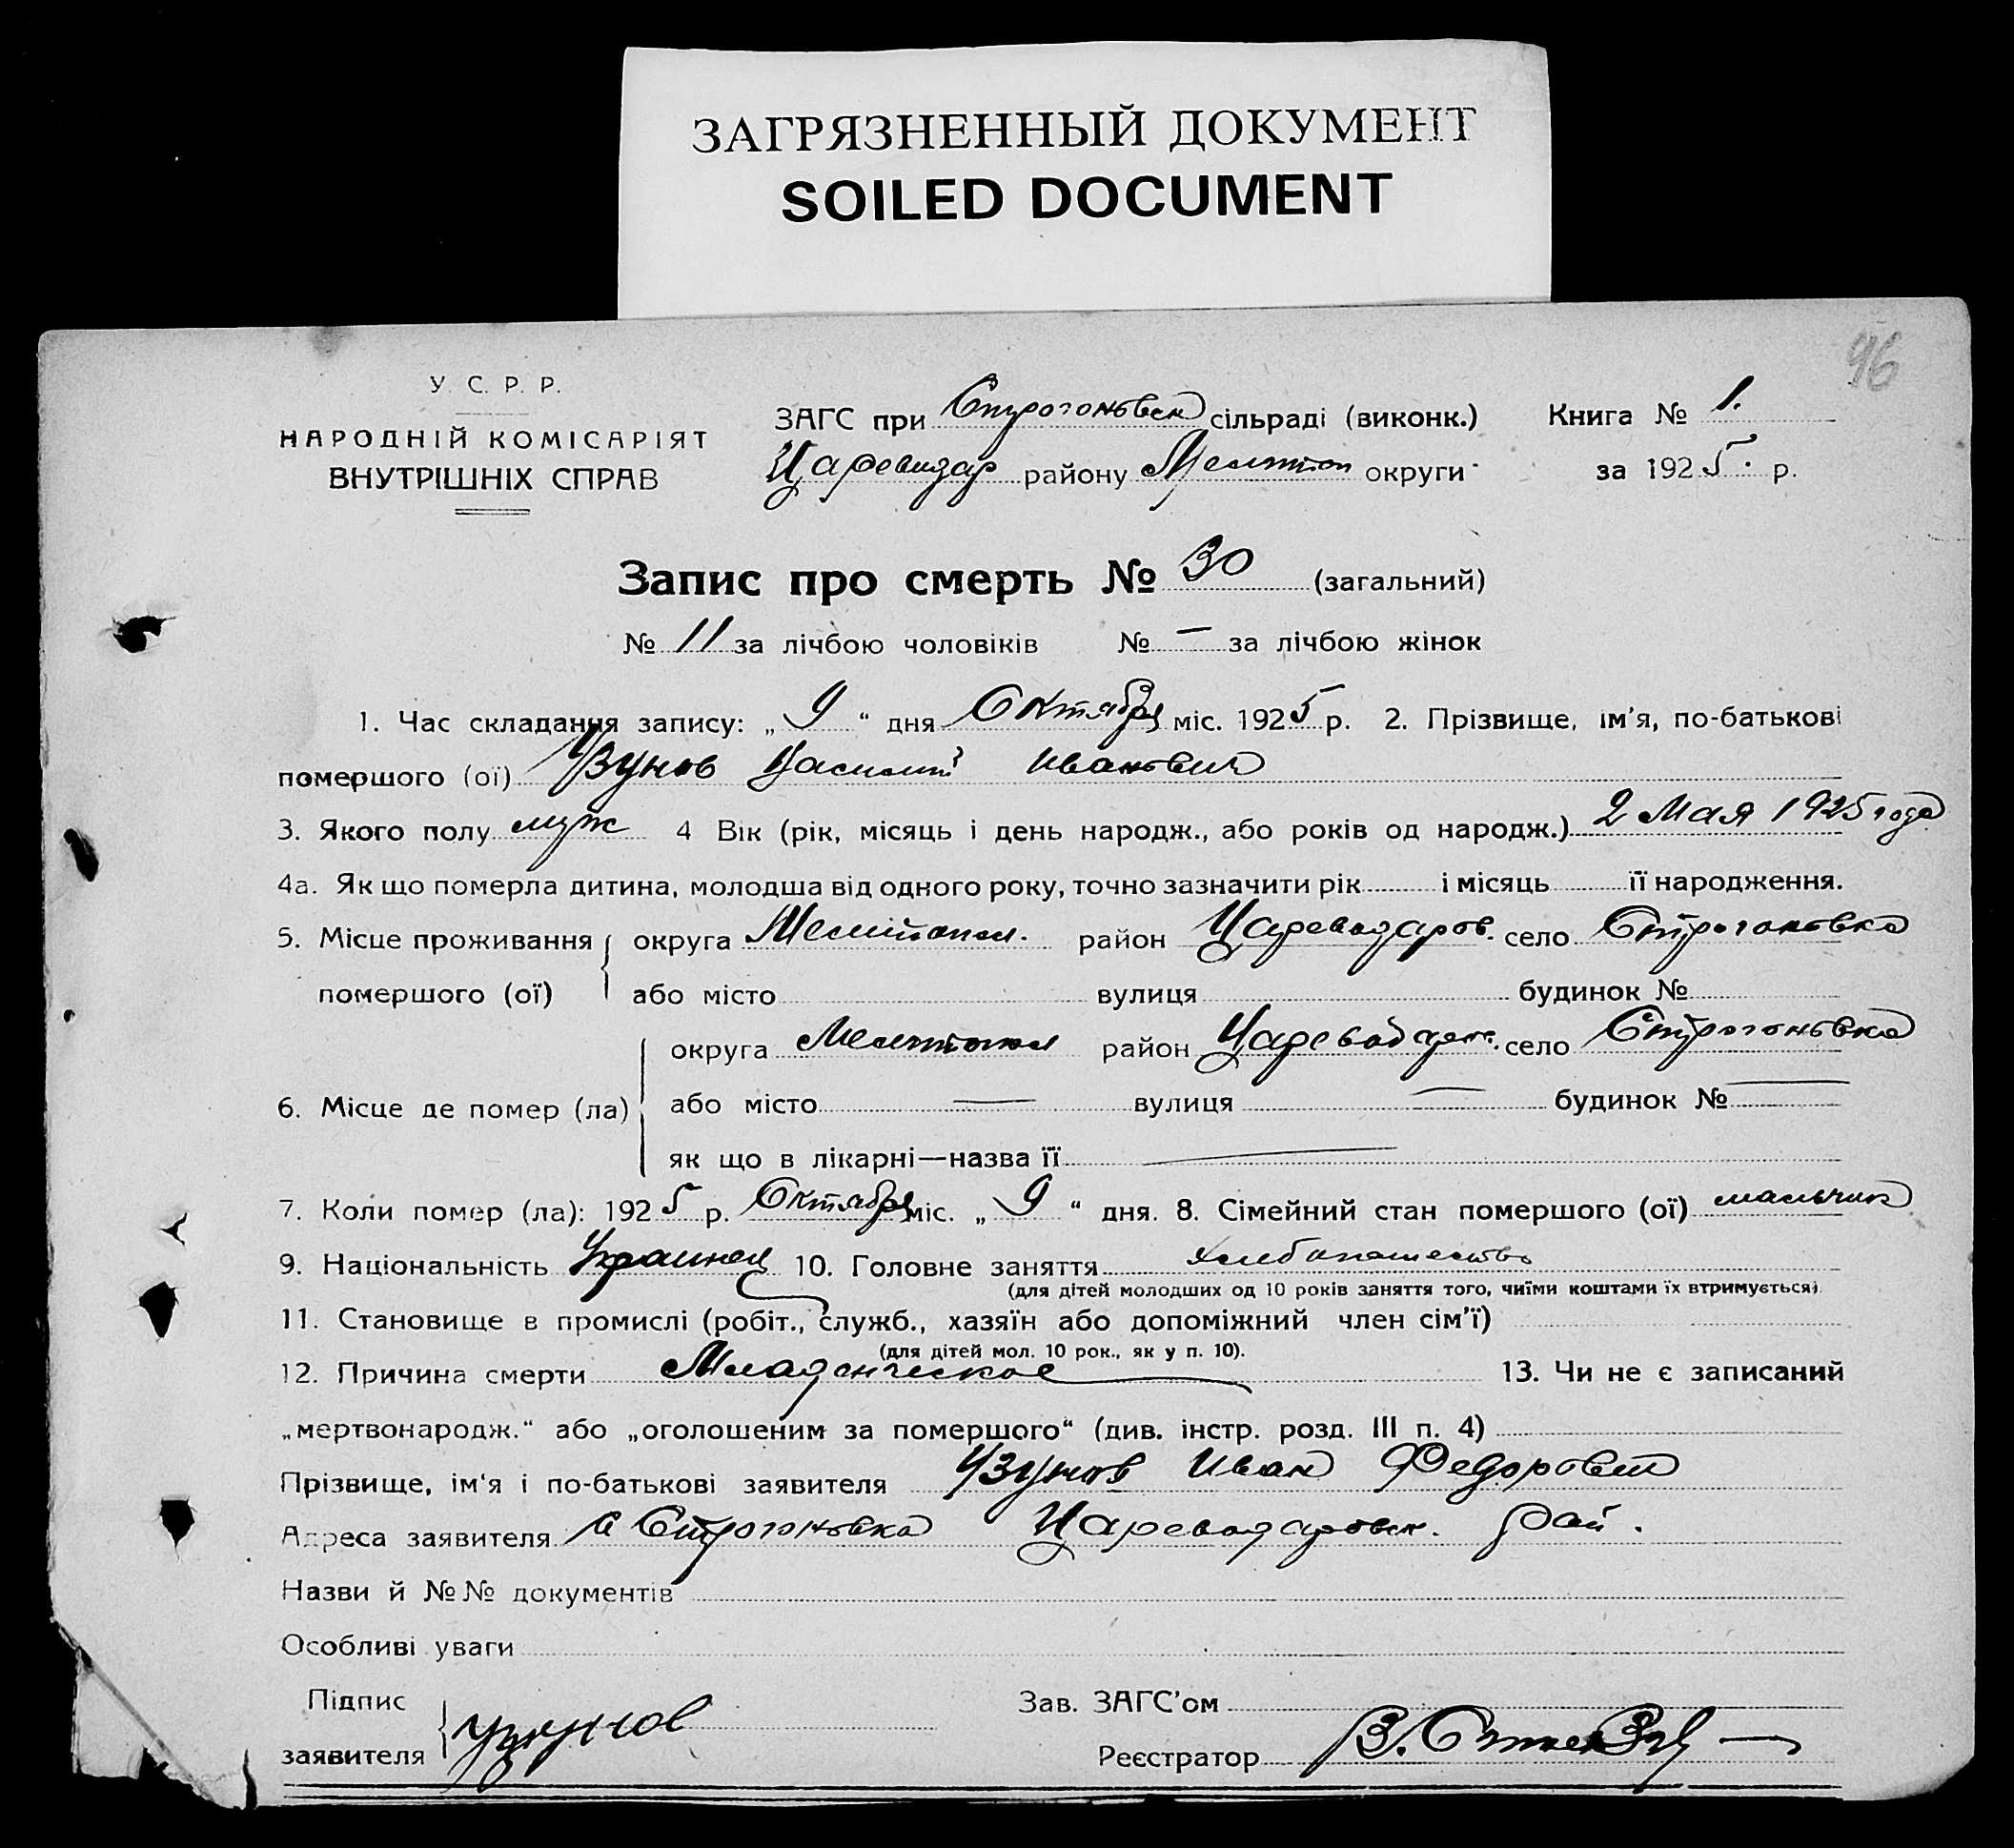 ЗАГРЯЗНЕННЫЙ ДОКУМЕНТ
SOILED DOCUMENT
96
У. С. Р. Р.
НАРОДНІЙ КОМІСАРІЯТ
ВНУТРІШНІХ СПРАВ
ЗАГС при Строгоновск сільраді (виконк.) Книга № 1.
Цареводар району Мелитоп округи за 1925 р.
Запис про смерть № 30 (загальний)
№ 11 за лічбою чоловіків № — за лічбою жінок
1. Час складання запису: „ 9 “ дня Октября міс. 1925 р. 2. Прізвище, ім'я, по-батькові
помершого (ої) Узунов Василий Иванович
3. Якого полу муж 4 Вік (рік, місяць і день народж., або років од народж.) 2 Мая 1925 года
4а. Як що померла дитина, молодша від одного року, точно зазначити рік і місяць її народження.
5. Місце проживання округа Мелитопол. район Цареводаров. село Строгоновка
помершого (ої) або місто вулиця будинок №
округа Мелитопол район село Строгоновка
6. Місце де помер (ла) або місто — вулиця — будинок № —
як що в лікарні—назва її —
7. Коли помер (ла): 1925 р. Октября міс. „ 9 “ дня. 8. Сімейний стан помершого (ої) мальчик
9. Національність Украинец 10. Головне заняття хлебопашество
(для дітей молодших од 10 років заняття того, чиїми коштами їх втримується)
11. Становище в промислі (робіт., служб., хазяїн або допоміжний член сім'ї)
(для дітей мол. 10 рок., як у п. 10).
12. Причина смерти Младенческое 13. Чи не є записаний
„мертвонародж.“ або „оголошеним за помершого“ (див. інстр. розд. III п. 4)
Прізвище, ім'я і по-батькові заявителя Узунов Иван Федорович
Адреса заявителя с Строгоновка Цареводаровск. рай.
Назви й №№ документів
Особливі уваги
Підпис Зав. ЗАГС'ом
заявителя Узунов Реєстратор